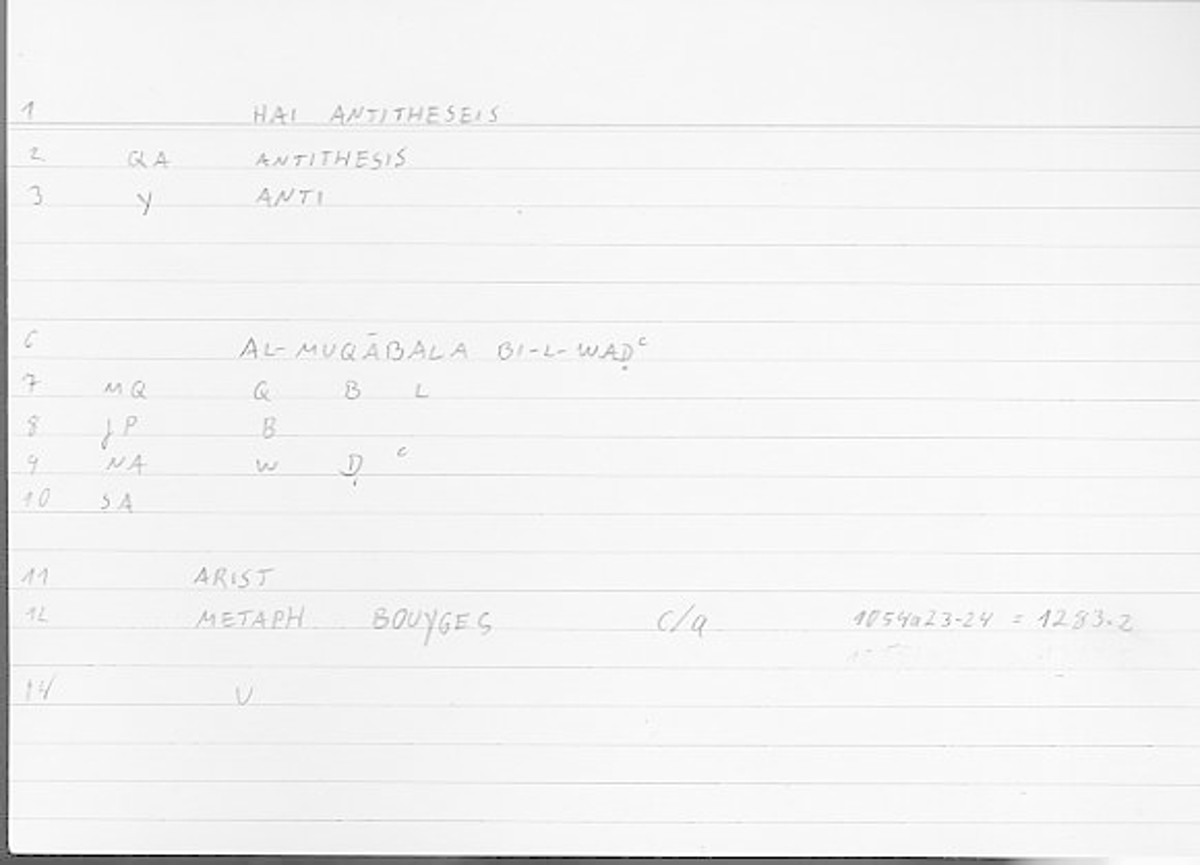 1 HAI ANTITHESEIS
2 QA ANTITHESIS
3 Y ANTI
6 AL-MUQĀBALA BI-L-WAḌᶜ
7 MQ Q B L
8 JP B
9 NA W Ḍ ᶜ
10 SA
11 ARIST
12 METAPH BOUYGES c/a 1054a23-24 = 1283.2
14 V